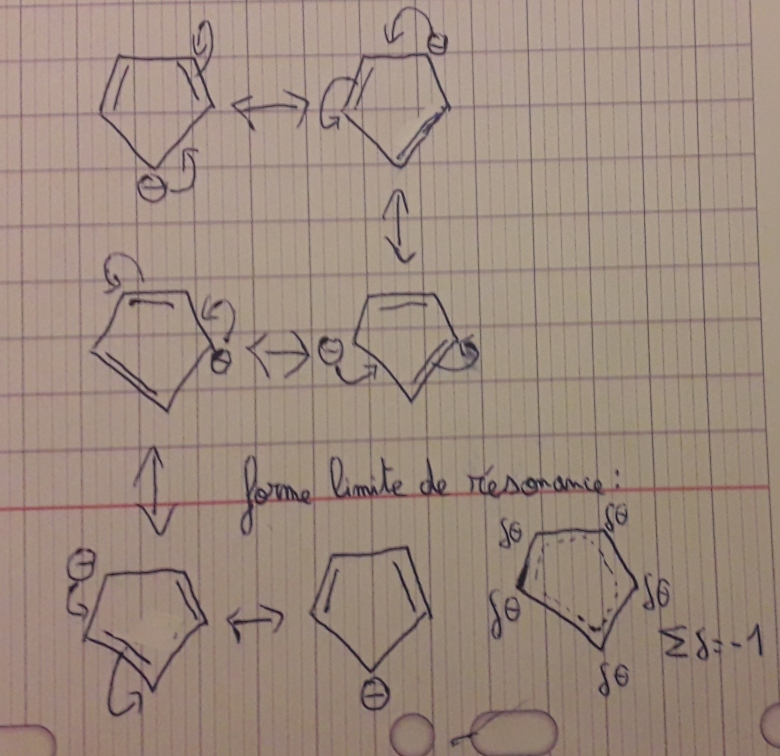 ⊖
⊖
⊖
⊖
forme limite de résonance :
⊖
δ⊖
δ⊖
δ⊖
δ⊖
δ⊖
Σδ=-1
⊖